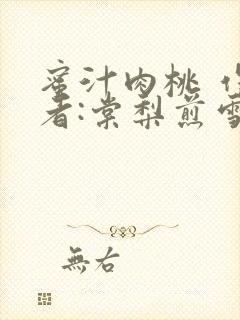 蜜汁肉桃
者:棠梨煎雪
無右